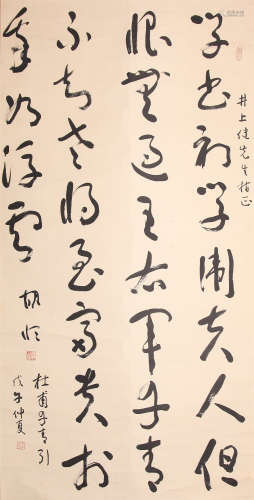 井上健先生指正
学书初学衛夫人但
恨無過王右軍丹青
不知老将至富貴於
我如浮雲
胡
杜甫丹青引
戊午仲夏